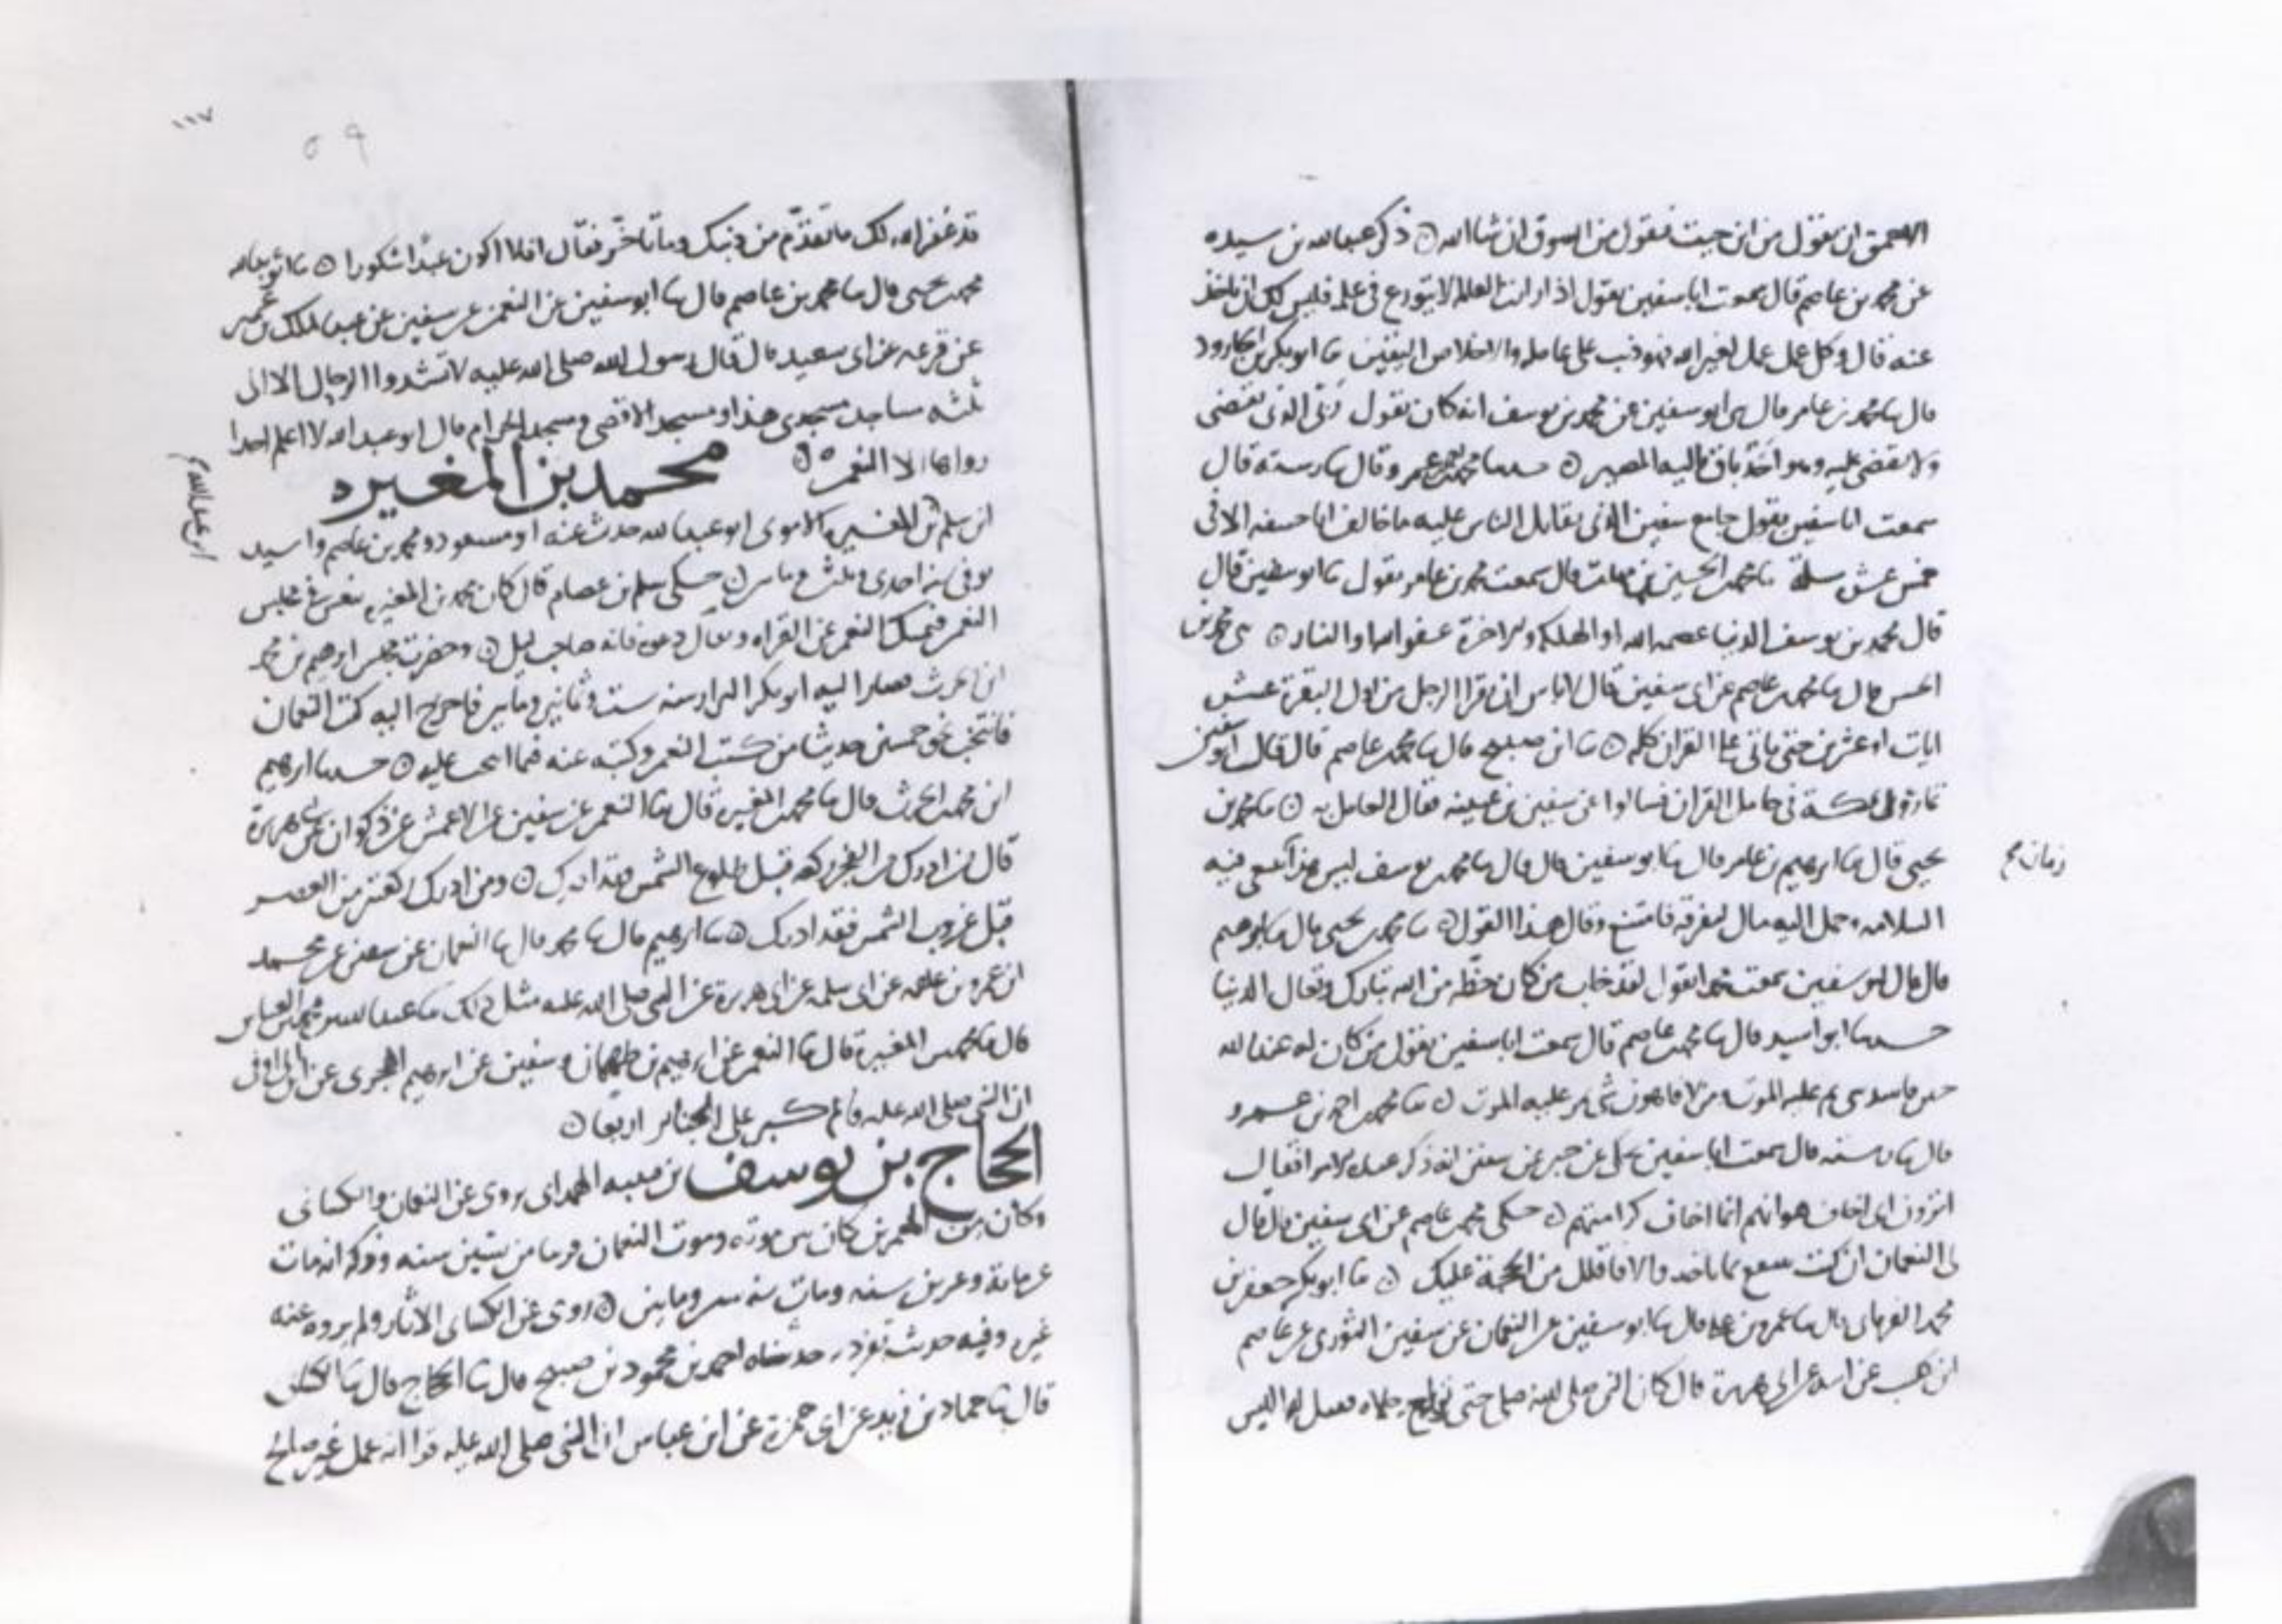 الاحمق ان يقول من اين جيت فيقول من السوق ان شا الله ه ذكر عبد الله بن سيده
عن محمد بن عاصم قال سمعت ابا سفين يقول اذا رايت العالم لا يتورع في علمه فليس لك ان تاخذ
عنه قال وكل عمل عمل لغير الله فهو ذنب على عامله والاخلاص اليقين ثنا ابو بكر بن الجارود
قال ثنا محمد بن عامر قال ثنى ابو سفين عن محمد بن يوسف انه كان يقول ربى الذى يقضى
ولا يقضى عليه وهو احد باق واليه المصير ه حدثنا محمد بن عمرو قال ثنا رسته قال
سمعت ابا سفين يقول جامع سفين الذى يقاتل الناس عليه ما خالف ابا حنيفه الا فى
خمس عشر مسلة ثنا محمد بن الحسين بن قال سمعت محمد بن عامر يقول ثنا ابو سفين قال
قال محمد بن يوسف الدنيا عصمه الله او الهلكه والاخرة عفو الله او النار ه ثنى محمد بن
الحسن قال ثنا محمد بن عاصم عن ابى سفين قال لا باس ان يقرا الرجل من اول البقرة عشر
ايات او عشرين حتى ياتى على القران كله ه ثنا ابن صبيح قال ثنا محمد بن عاصم قال قال ابو سفين
تماروا بمكة فى حامل القران فسالوا عن سفين بن عيينه فقال العامل به ه ثنا محمد بن
يحيى قال ثنا ابرهيم بن عامر قال ثنا ابو سفين قال قال ثنا محمد بن يوسف ليس هذا يبتغى فيه
زمان صح
السلامه وحمل اليه مال ليفرقه فامتنع وقال هذا القول ه ثنا محمد بن يحيى قال ثنا ابرهيم
قال قال ابو سفين سمعت محمدا يقول لقد خاب من كان حظه من الله تبارك وتعال الدنيا
حدثنا ابو اسيد قال ثنا محمد بن عاصم قال سمعت ابا سفين يقول من كان له عند الله
عليه الموت ومن لا فاهون شى مر عليه الموت ه ثنا محمد بن احمد بن عمرو
قال ثنا رسته قال سمعت ابا سفين يحكى عن عن سفين انه ذكر عنده الامرا فقال
اترون انى اخاف هوانهم انما اخاف كرامتهم ه حكى محمد بن عاصم عن ابى سفين قال قال
لى النعمان ان كنت تنتفع بما تاخذ والا فاقلل من الحجة عليك ه ثنا ابو بكر جعفر بن
محمد قال ثنا عمرو بن على قال ثنا ابو سفين عن النعمان عن سفين الثورى عن عاصم
ابن كليب عن ابيه عن ابى هريرة قال كان النبى صلى الله عليه يصلى حتى تورم رجلاه فقيل له اليس
١١٧
٥٩
قد غفر الله لك ما تقدم من ذنبك وما تاخر فقال افلا اكون عبدا شكورا ه ثنا ابو عبد الله
محمد بن يحيى قال ثنا محمد بن عاصم قال ثنا ابو سفين عن النعمن عن سفين عن عبد الملك بن عمير
عن قزعه عن ابى سعيد قال قال رسول الله صلى الله عليه لا تشدوا الرحال الا الى
ثلثه مساجد مسجدى هذا ومسجد الاقصى ومسجد الحرام قال ابو عبد الله لا اعلم احدا
رواها الا النعمن ه محمد بن المغيره
ابن سلم بن المغيره الاموى ابو عبد الله حدث عنه ابو مسعود ومحمد بن عاصم واسيد
توفى سنة احدى وثلثين وماتين ه حكى سلم بن عصام قال كان محمد بن المغيرة ينعس فى مجلس
النعمن فيمسك النعمن عن القراه ويقال دعوه فانه صاحب ليل ه وحضرت مجلس ابرهيم بن محمد
ابن الحرث فصار اليه ابو بكر البزار سنه ست وثمانين وماتين فاخرج اليه كتب النعمان
فانتخب نحو خمسين حديثا من كتب النعمن وكتبه عنه فما انتخب عليه ه حدثنا ابرهيم
ابن محمد بن الحرث قال ثنا محمد بن المغيرة قال ثنا النعمن عن سفين عن الاعمش عن ذكوان عن ابى هريرة
قال من ادرك من الفجر ركعه قبل طلوع الشمس فقد ادرك ه ومن ادرك ركعتين من العصر
قبل غروب الشمس فقد ادرك ه ثنا ابرهيم قال ثنا محمد قال ثنا النعمان عن سفين عن محمد
ابن عمرو بن علقمه عن ابى سلمه عن ابى هريرة عن النبى صلى الله عليه مثل ذلك ثنا عبد الله بن محمد بن العباس
قال ثنا محمد بن المغيرة قال ثنا النعمن عن ابرهيم بن طهمان وسفين عن ابرهيم الهجرى عن ابن ابى اوفى
ان النبى صلى الله عليه وسلم كبر على الجنائز اربعا ه
الحجاج بن يوسف بن قتيبه الهمدانى يروى عن النعمان والكسائى
وكان من المعمرين كان بين موته وموت النعمان قريبا من ستين سنه وذكر انه مات
عن ماية وعشرين سنه ومات سنه ستين وماتين ه روى عن الكسائى الاثار ولم يروه عنه
غيره وفيه حديث تفرد به حدثناه احمد بن محمود بن صبيح قال ثنا الحجاج قال ثنا الكسائى
قال ثنا حماد بن زيد عن ابى حمزة عن ابن عباس ان النبى صلى الله عليه قرا انه عمل غير صالح